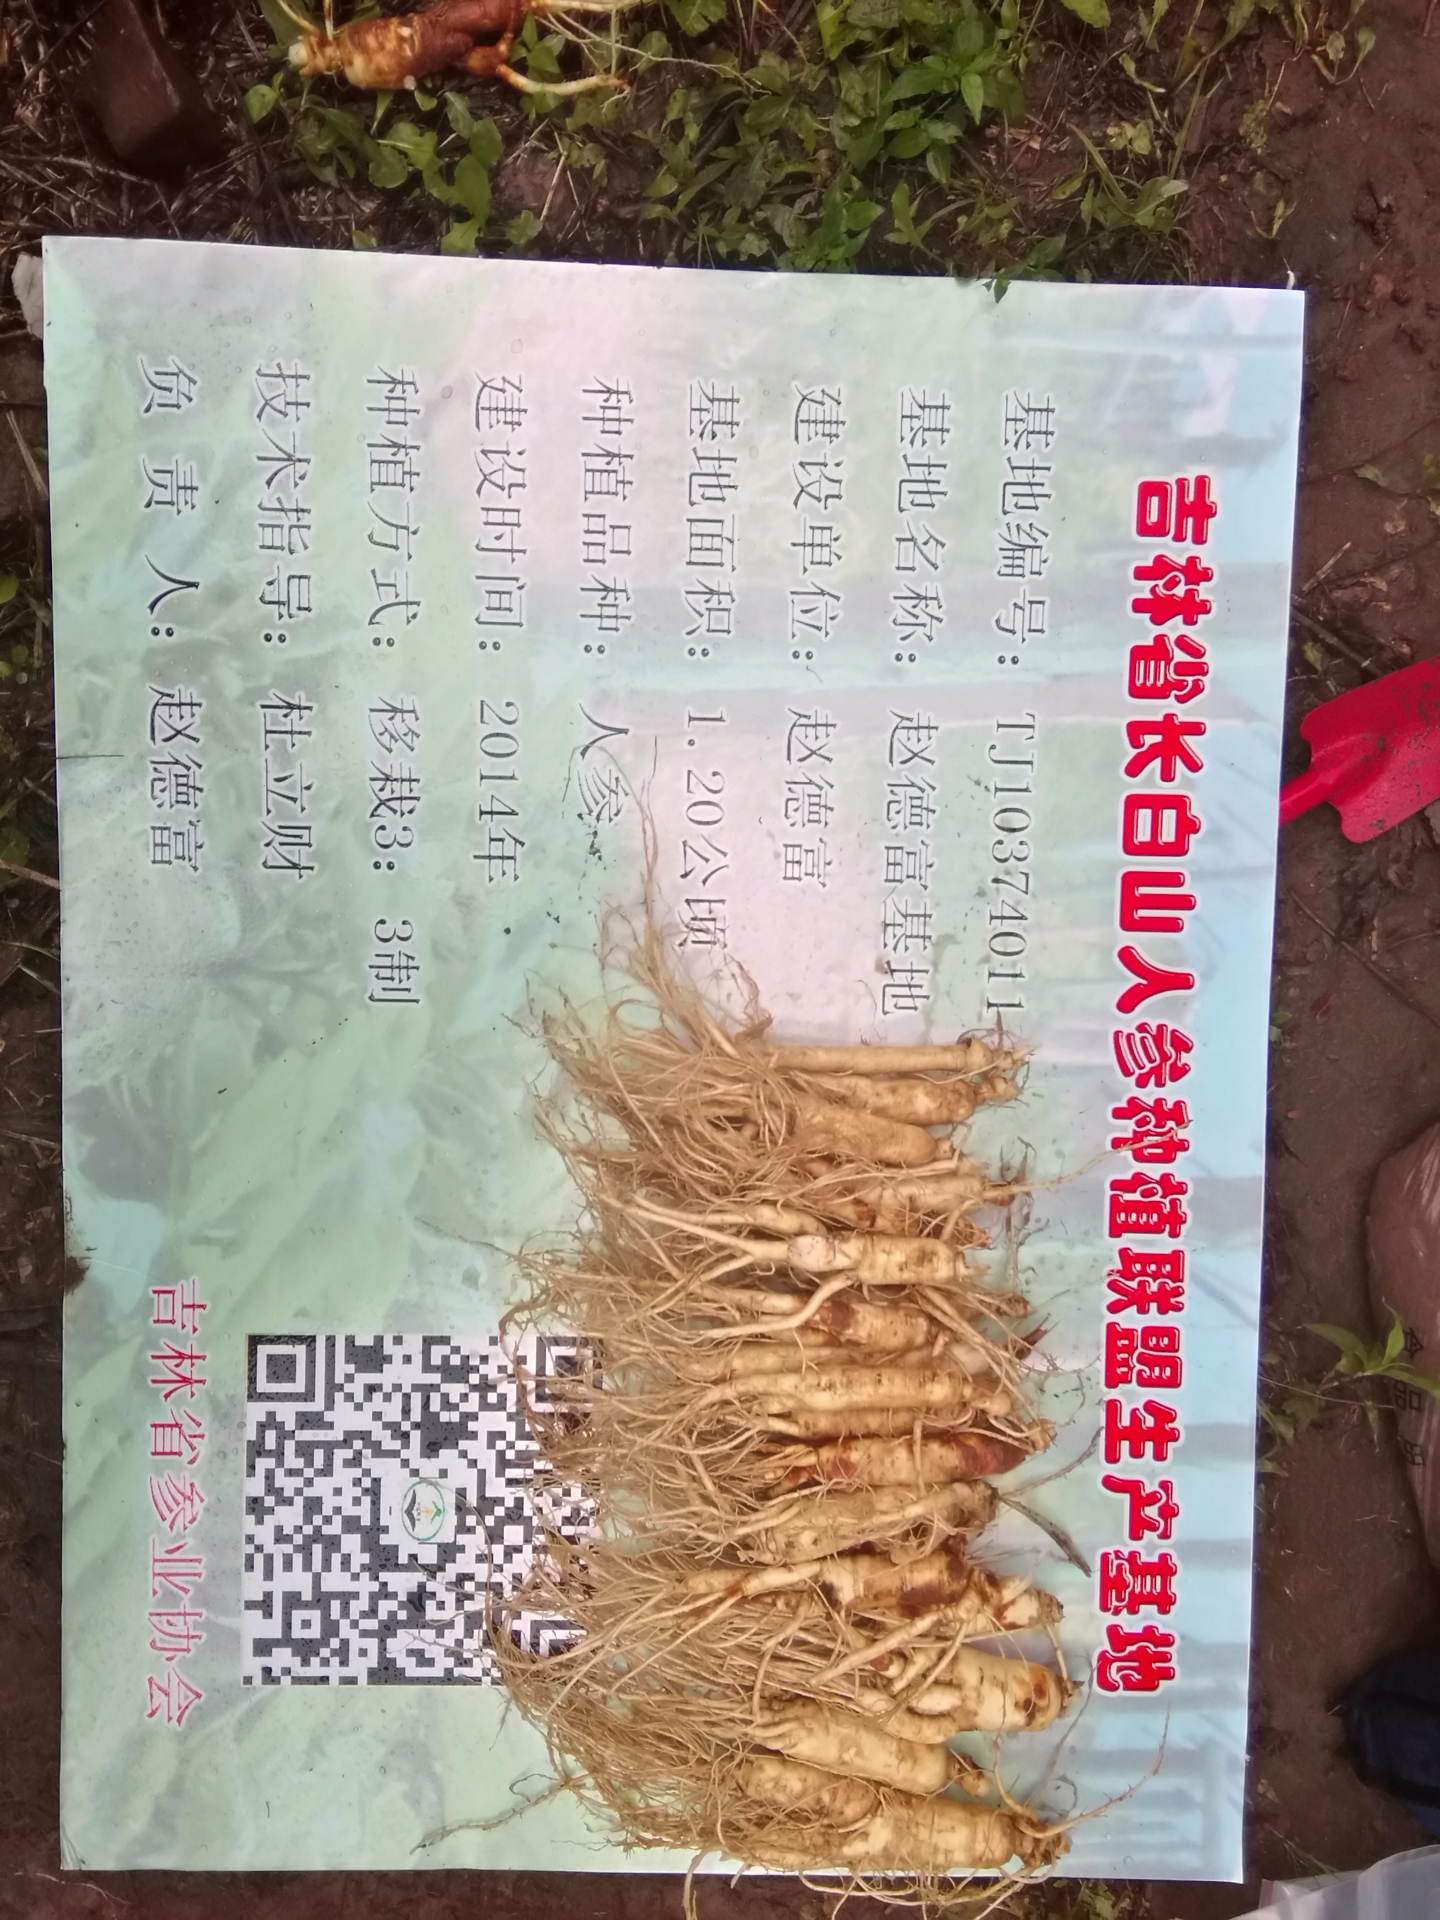 吉林省长白山人参种植联盟生产基地
基地编号：TJ10374011
基地名称：赵德富基地
建设单位：赵德富
基地面积：1.20公顷
种植品种：人参
建设时间：2014年
种植方式：移栽3：3制
技术指导：杜立财
负责人：赵德富
吉林省参业协会